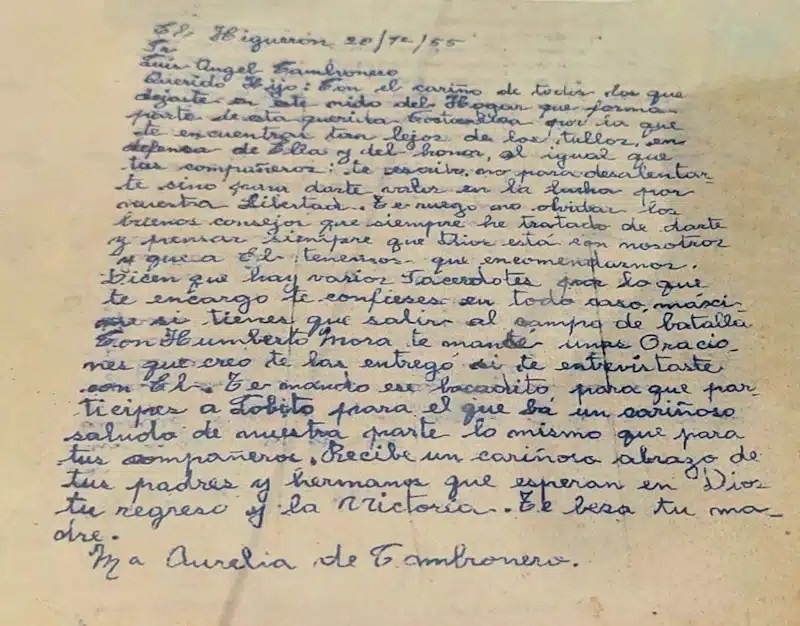 El Higuerón 20/12/55
Sr
Luis Angel Tambronero
Querido Hijo: Con el cariño de todos los que
dejaste en este nido del Hogar que forma
parte de esta querida Costa Rica por la que
te encuentras tan lejos de los tullos, en
defensa de Ella y del honor, al igual que
tus compañeros; te escribo, no para desalentar-
te sino para darte valor en la lucha por
nuestra Libertad. Te ruego no olvidar los
buenos consejos que siempre he tratado de darte
y pensar siempre que Dios está con nosotros
y que a El tenemos que encomendarnos.
Dicen que hay varios Sacerdotes por lo que
te encargo te confieses en todo caso, máxi-
me si tienes que salir al campo de batalla
Con Humberto Mora te mande unas Oracio-
nes que creo te las entregó si te entrevistaste
con El. Te mando ese bocadito para que par-
ticipes a Lobito para el que bá un cariñoso
saludo de nuestra parte lo mismo que para
tus compañeros. Recibe un cariñoso abrazo de
tus padres y hermanos que esperan en Dios
tu regreso y la Victoria. Te besa tu ma-
dre.
Ma Aurelia de Tambronero.